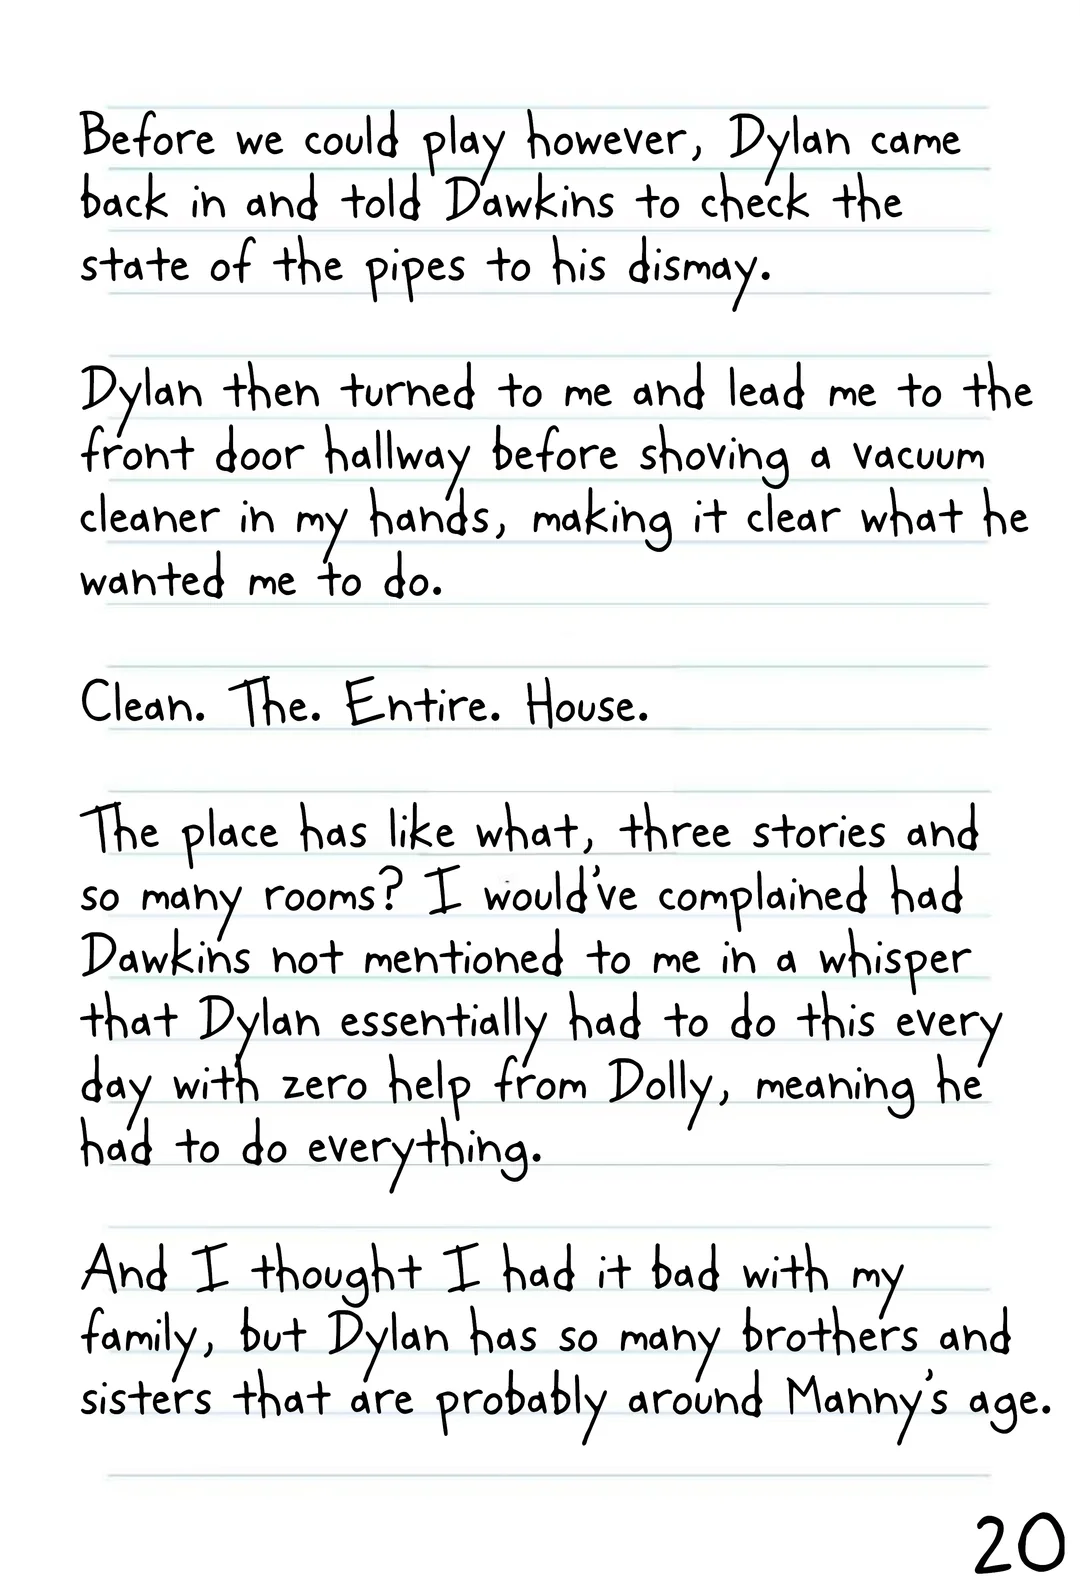 Before we could play however, Dylan came
back in and told Dawkins to check the
state of the pipes to his dismay.
Dylan then turned to me and lead me to the
front door hallway before shoving a vacuum
cleaner in my hands, making it clear what he
wanted me to do.
Clean. The. Entire. House.
The place has like what, three stories and
so many rooms? I would've complained had
Dawkins not mentioned to me in a whisper
that Dylan essentially had to do this every
day with zero help from Dolly, meaning he
had to do everything.
And I thought I had it bad with my
family, but Dylan has so many brothers and
sisters that are probably around Manny's age.
20